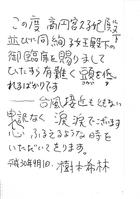 この度 高円宮久子妃殿下
並びに同絢子女王殿下の
御臨席を賜りまして
ひたすら有難く頭を低く
れるばかりです
──台風接近もともない
申訳なく 涙涙でございます
忘 ふるえるような時を
いただいております。
平成30年9月1日. 樹木希林